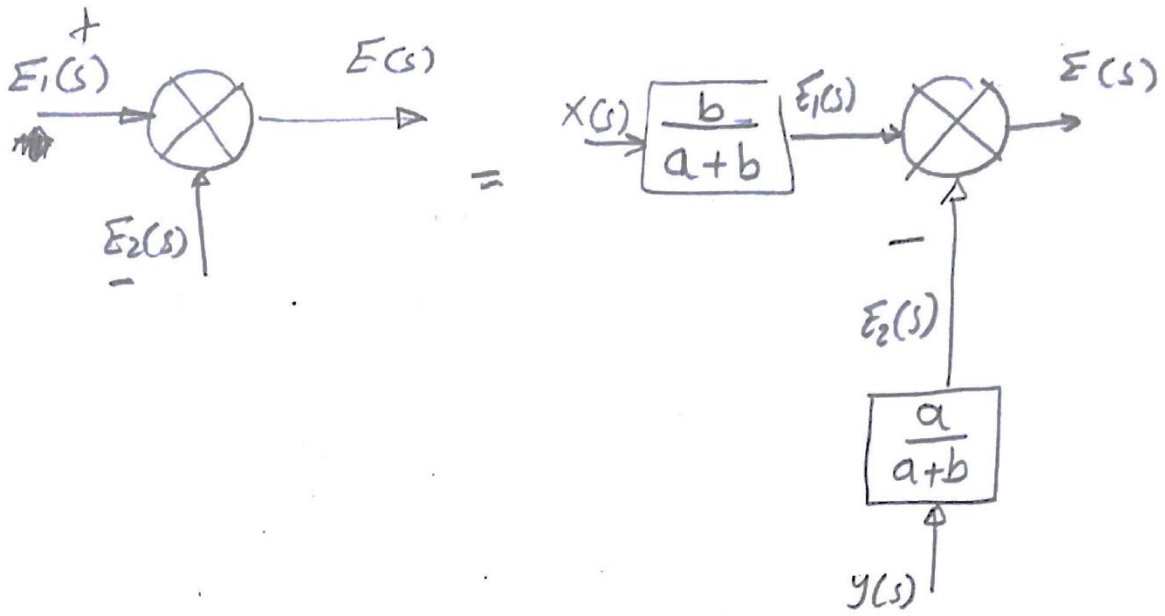 +
E₁(s)
E(s)
E₂(s)
-
=
X(s)
b
a+b
E₁(s)
E(s)
-
E₂(s)
a
a+b
y(s)